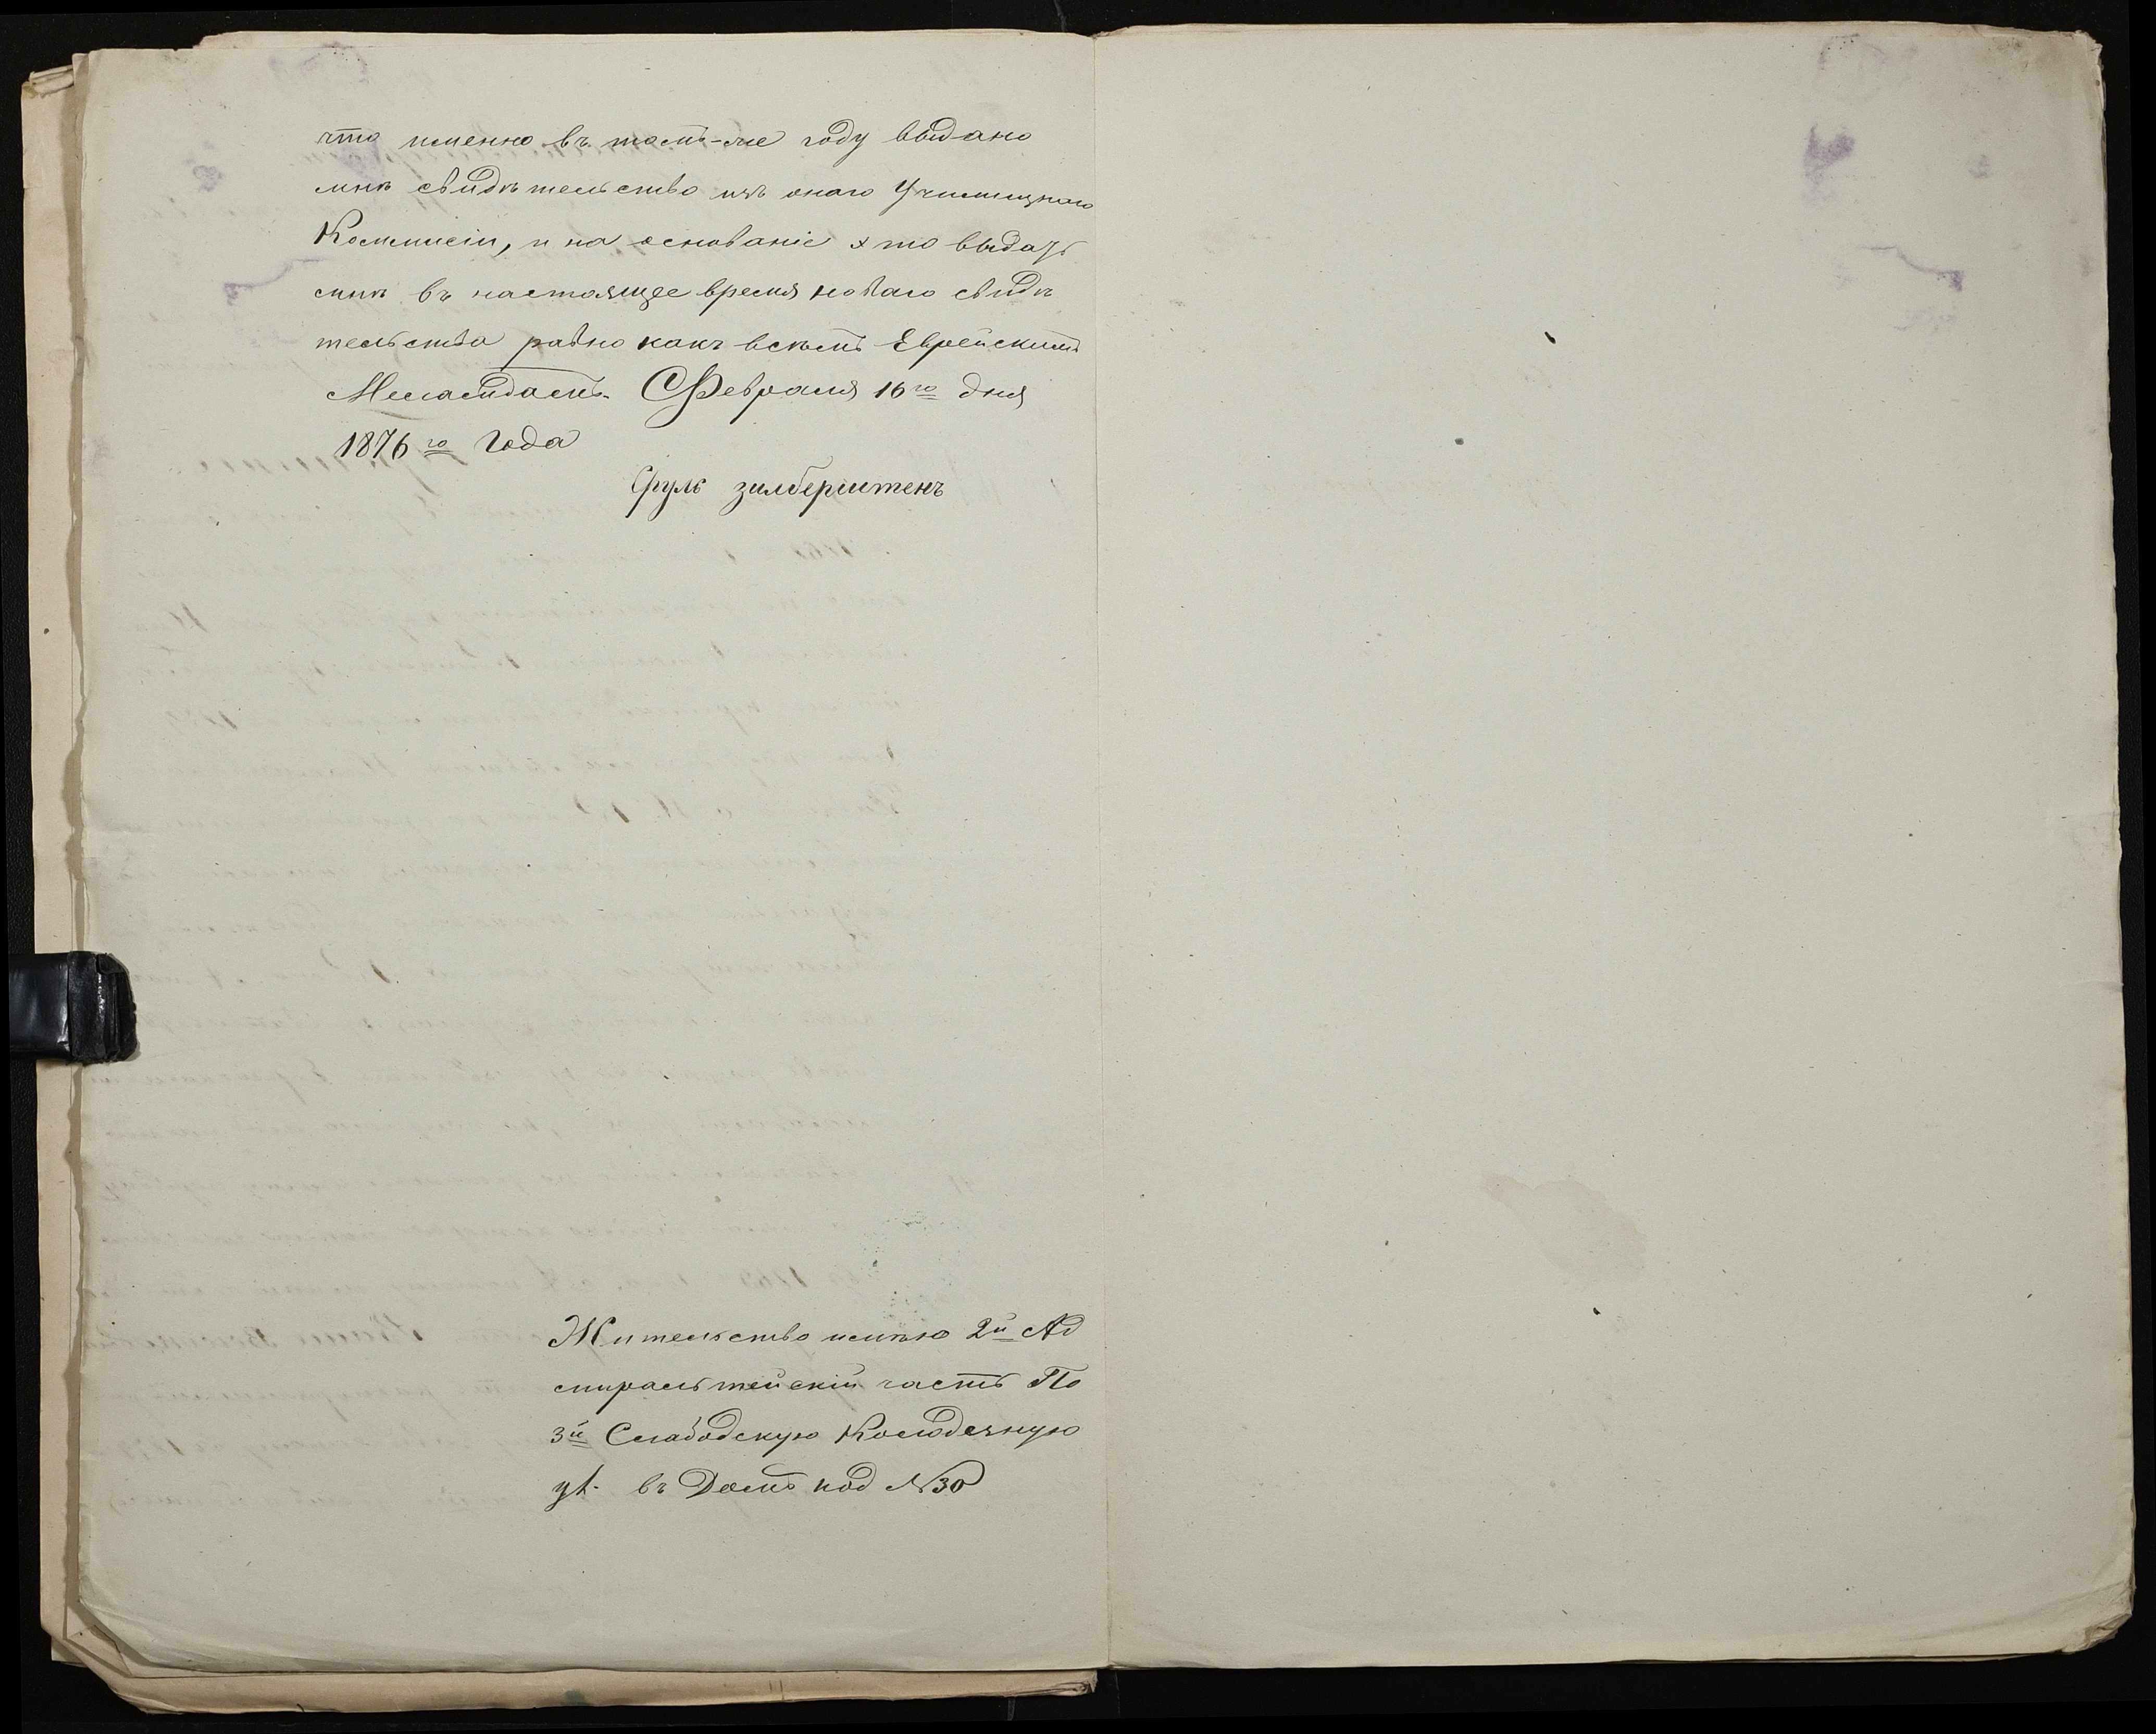 что именно въ томъ-же году выдано
мнѣ свидѣтельство изъ онаго Училищнаго
Коммисіи, и на основаніе это выдать
мнѣ въ настоящее время новаго свидѣ
тельства равно какъ всѣмъ Еврейскимъ
Меламдамъ. Февраля 16го дня
1876го Года
Сруль зилберштенъ
Жительство имѣю 2й Ад
миральтейскій часть По
3й Слабодскую Колодезную
ул. въ Домъ под №30